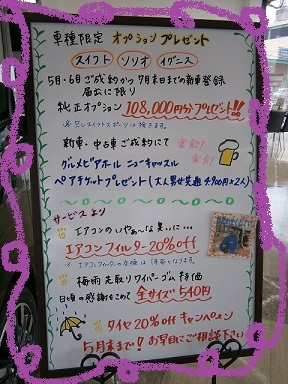 車種限定 オプションプレゼント
スイフト ソリオ イグニス
5月・6月ご成約かつ7月末日までの新車登録
届出に限り
純正オプション 108,000円分プレゼント!!
※但しスイフトスポーツは除きます。
新車・中古車ご成約にて
グルメビアホール ニューキャッスル
ペアチケットプレゼント(大人男女共通 4,900円×2人)
サービスより
エアコンのいやぁ〜な臭いに…
エアコンフィルター20%off
梅雨先取りワイパーゴム特価
日頃の感謝をこめて 全サイズ540円
タイヤ20%offキャンペーン
5月末まで!お早目にご相談下さい